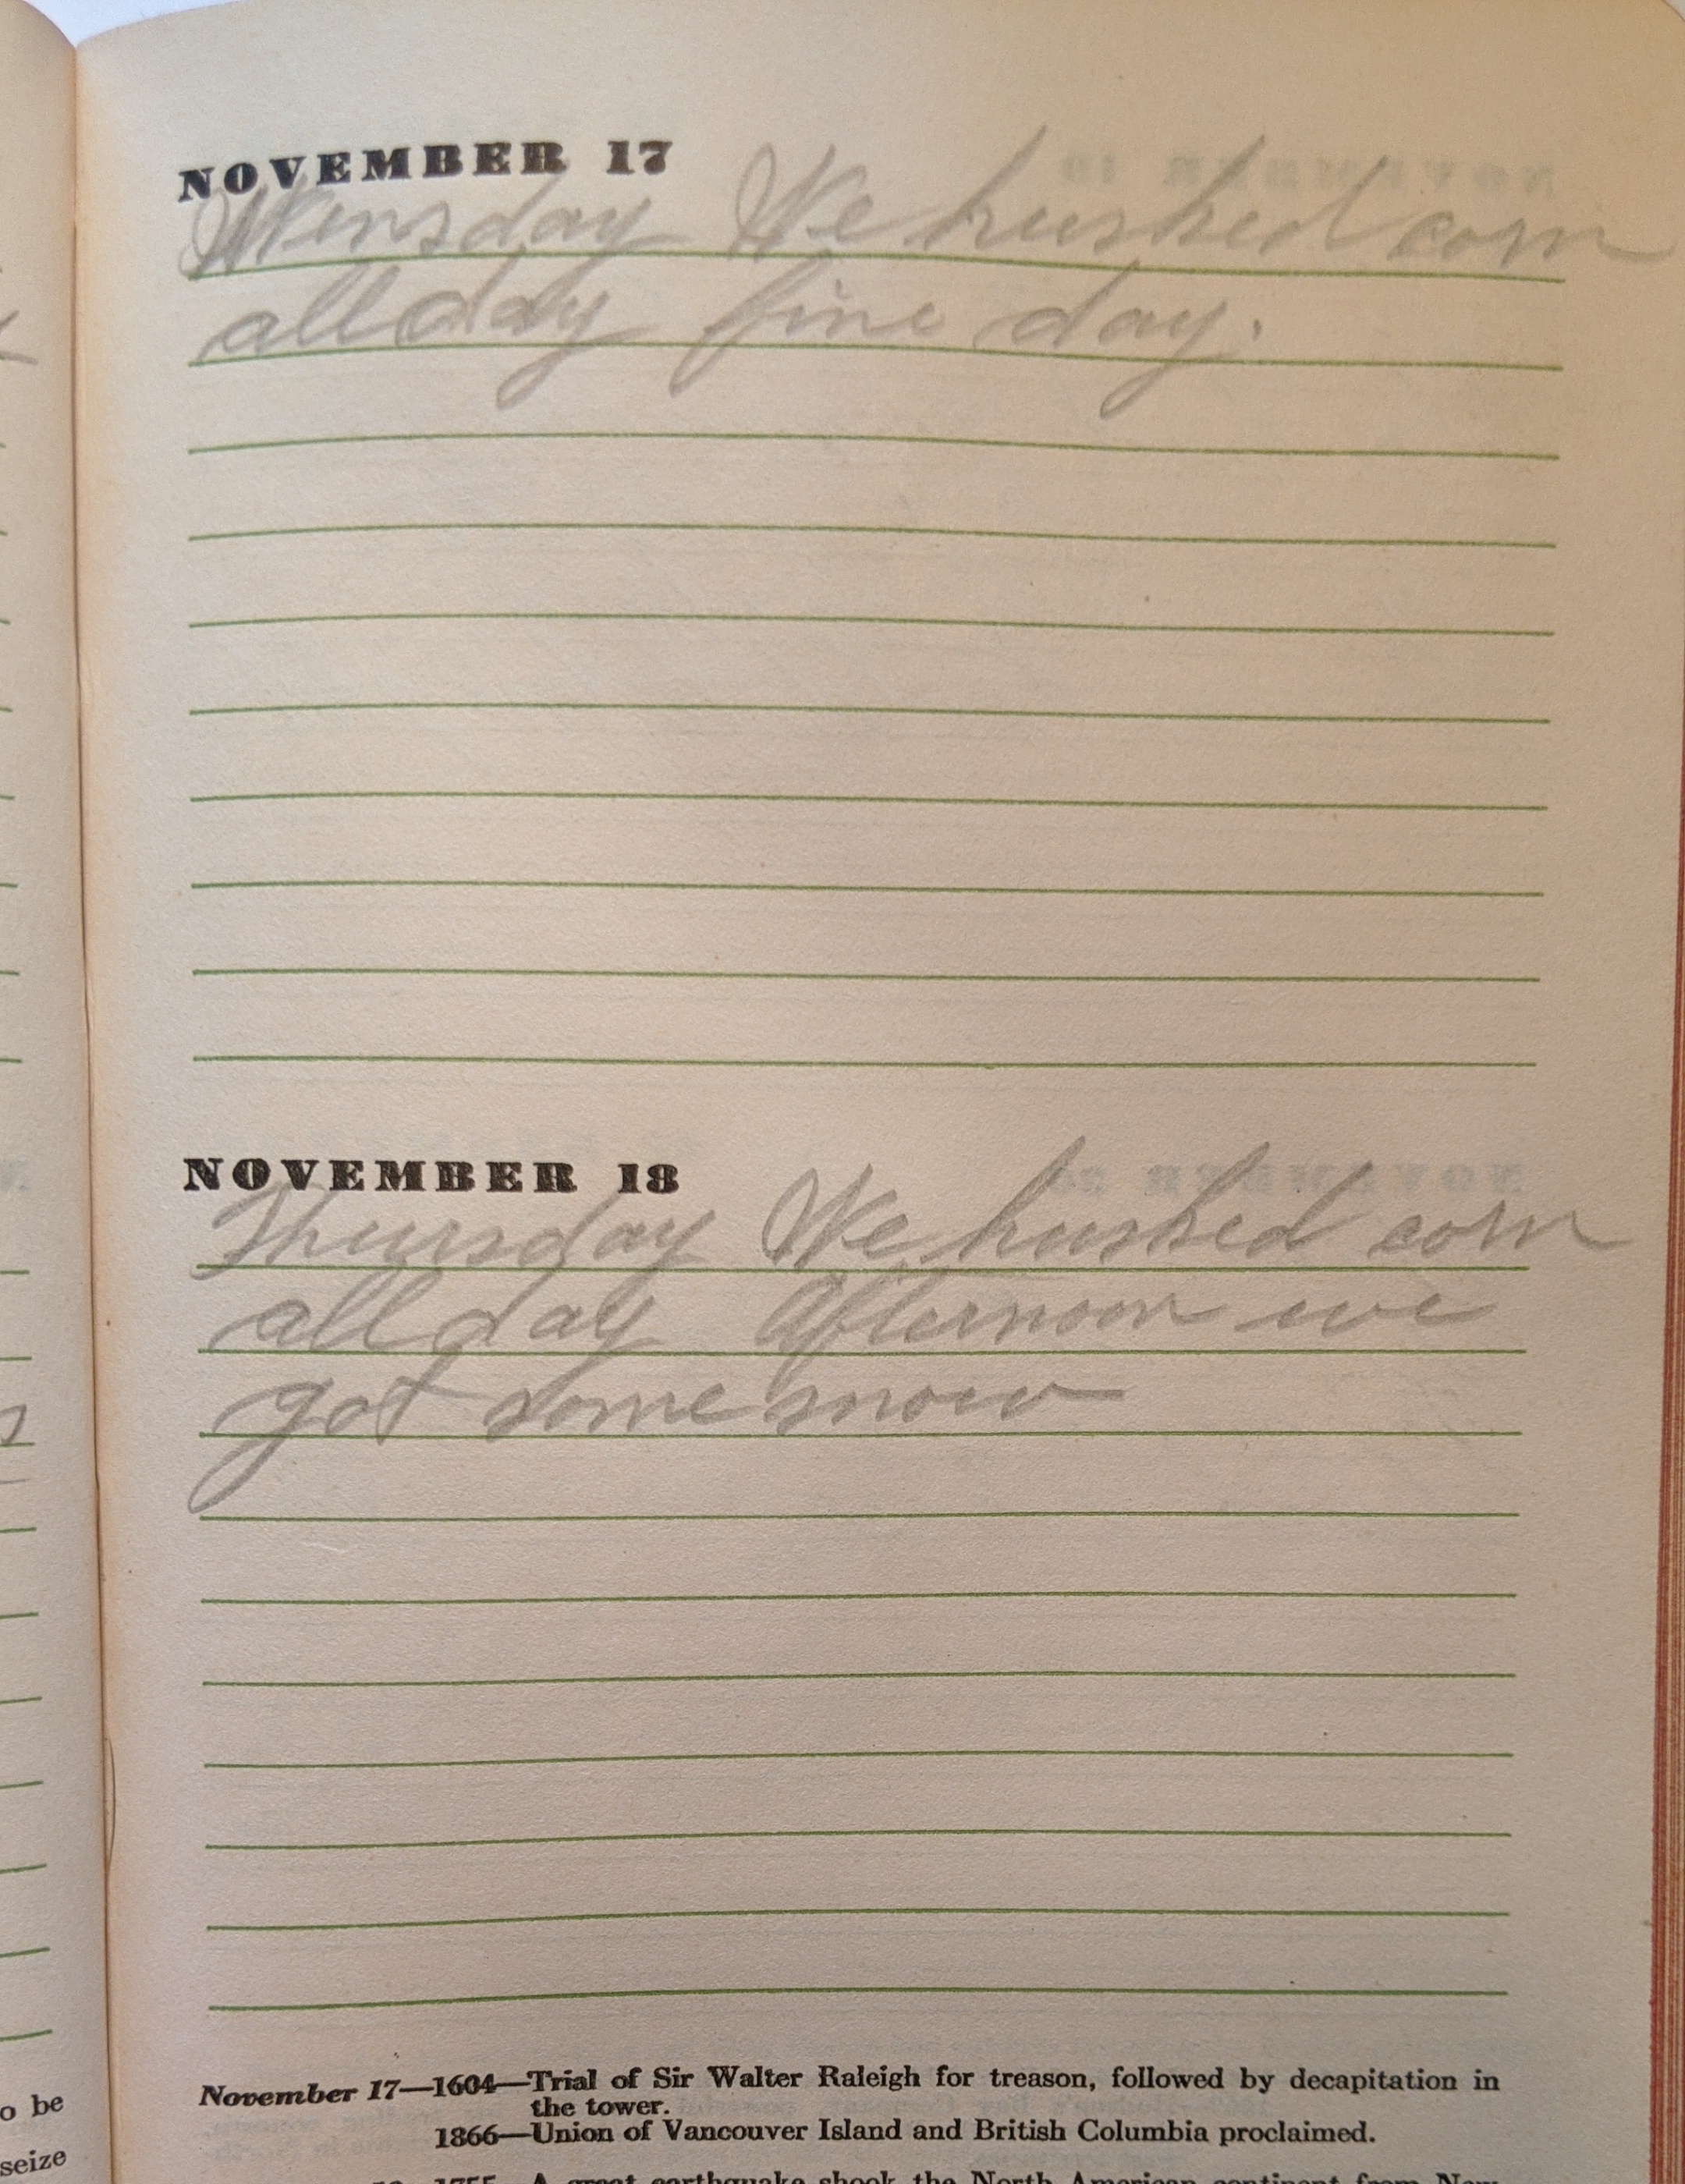 NOVEMBER 17
Wensday We husked corn
all day fine day.
NOVEMBER 18
Thursday We husked corn
all day Afternoon we
got some snow
November 17—1604—Trial of Sir Walter Raleigh for treason, followed by decapitation in
the tower.
1866—Union of Vancouver Island and British Columbia proclaimed.
1755—A great earthquake shook the North American continent from New
o be
seize